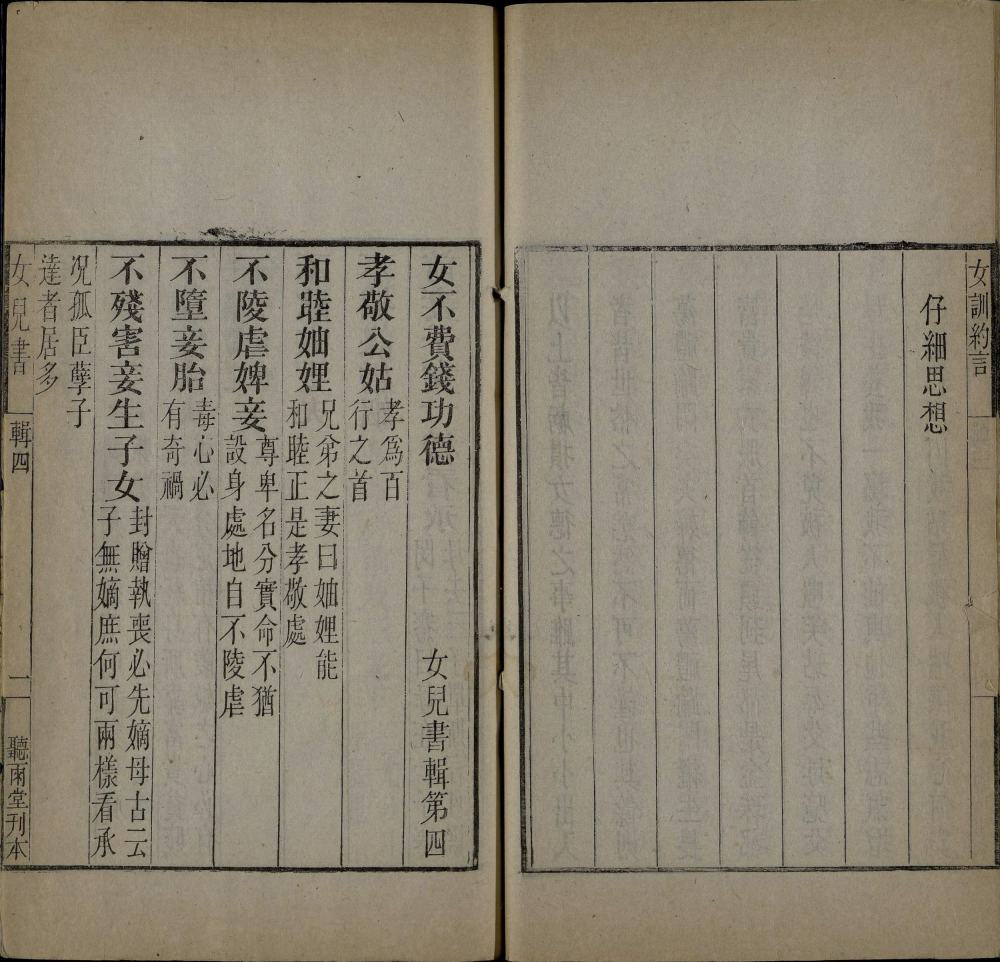 女訓約言
仔細思想
女不費錢功德
女兒書輯第四
孝敬公姑
孝爲百
行之首
和睦妯娌
兄弟之妻曰妯娌能
和睦正是孝敬處
不陵虐婢妾
尊卑名分實命不猶
設身處地自不陵虐
不墮妾胎
毒心必
有奇禍
不殘害妾生子女
封贈執喪必先嫡母古云
子無嫡庶何可兩樣看承
況孤臣孽子
達者居多
女兒書
輯四
一
聽雨堂刊本